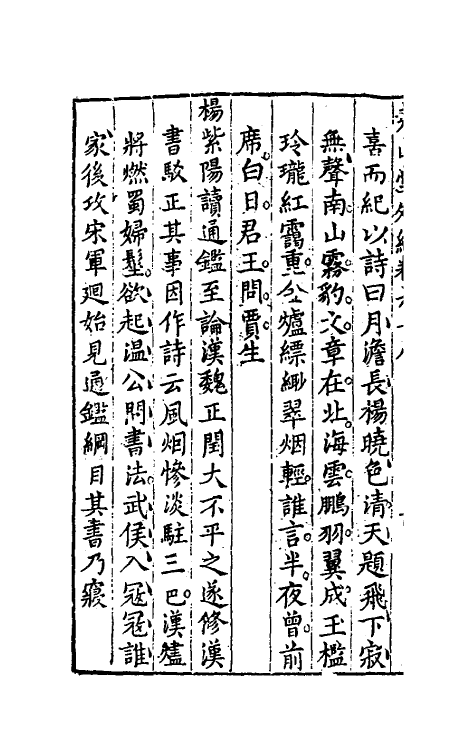 喜而紀以詩曰月澹長楊曉色清天題飛下寂
無聲南山霧豹文章在北海雲鵬羽翼成玉檻
玲瓏紅露重金爐縹緲翠烟輕誰言半夜曾前
席白日君王問賈生
楊紫陽讀通鑑至論漢魏正閏大不平之遂修漢
書駁正其事因作詩云風烟慘淡駐三巴漢燼
將燃蜀婦髽欲起温公問書法武侯入冦冦誰
家後攻宋軍廻始見通鑑綱目其書乃寢